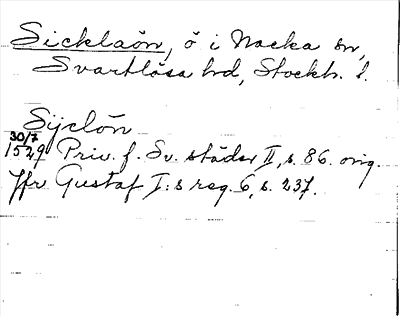 Sicklaön, ö i Nacka sn,
Svartlösa hd, Stockh. l.
Sijclön
30/7
1529 Priv. f. Sv. städer II, s. 86. orig.
Jfr Gustaf I:s reg. 6, s. 237.